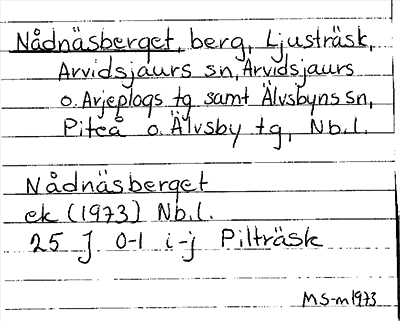 Nådnäsberget, berg, Ljusträsk,
Arvidsjaurs sn, Arvidsjaurs
o. Arjeplogs tg samt Älvsbyns sn,
Piteå o. Älvsby tg, Nb.l.
Nådnäsberget
ek (1973) Nb.l.
25 J 0-1 i-j Pilträsk
MS-m 1973